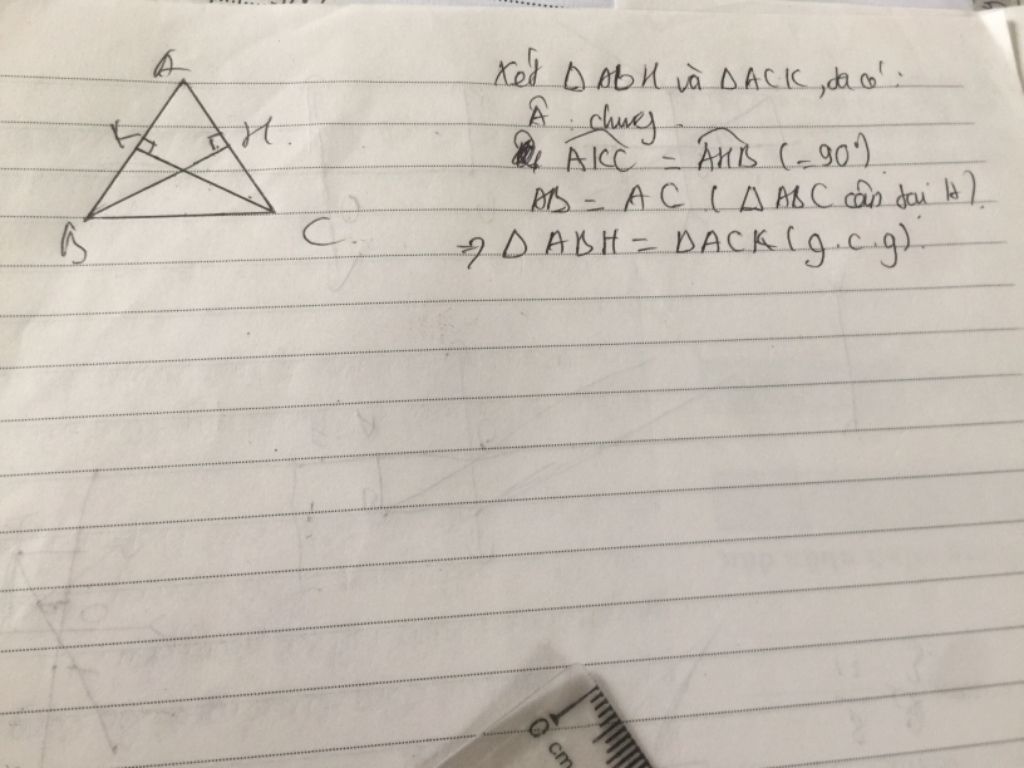 A
K
H.
B
C.
Xét Δ ABH và Δ ACK, ta có:
Â : chung.
AKC = AHB (= 90°)
AB = AC ( Δ ABC cân tại A).
=> Δ ABH = ΔACK (g.c.g).
0 cm